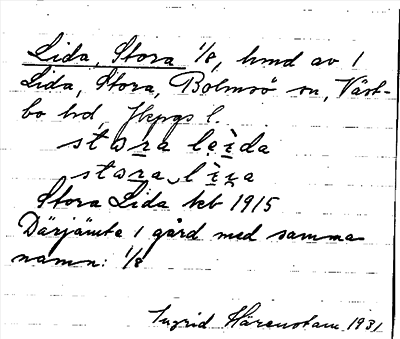 Lida, Stora 1/8, hmd av 1
Lida, Stora, Bolmsö sn, Väst-
bo hd, Jkpgs l.
Stora Lida kbt 1915
Därjämte 1 gård med samma
namn: 1/8
Ingrid Härenstam 1931